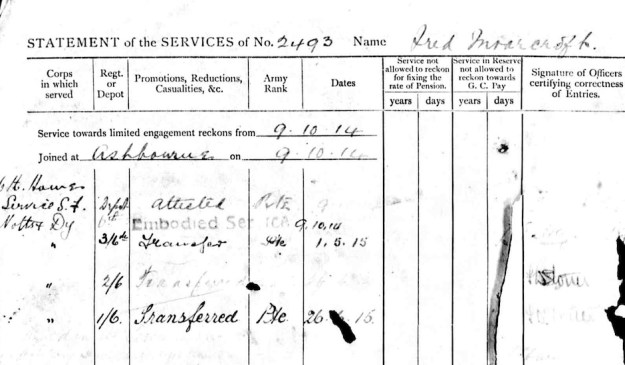 STATEMENT of the SERVICES of No. 2493 Name Fred Moorcroft.
Corps in which served
Regt. or Depot
Promotions, Reductions, Casualties, &c.
Army Rank
Dates
Service not allowed to reckon for fixing the rate of Pension.
years days
Service in Reserve not allowed to reckon towards G. C. Pay
years days
Signature of Officers certifying correctness of Entries.
Service towards limited engagement reckons from 9.10.14
Joined at Ashbourne on 9.10.14
Service attested Pte 9
Notts & Dy 6th Embodied Ser 9.10.14
" 3/6th Transfer Pte 1.5.15
" 2/6 Transferred
" 1/6. Transferred Pte 26 16.